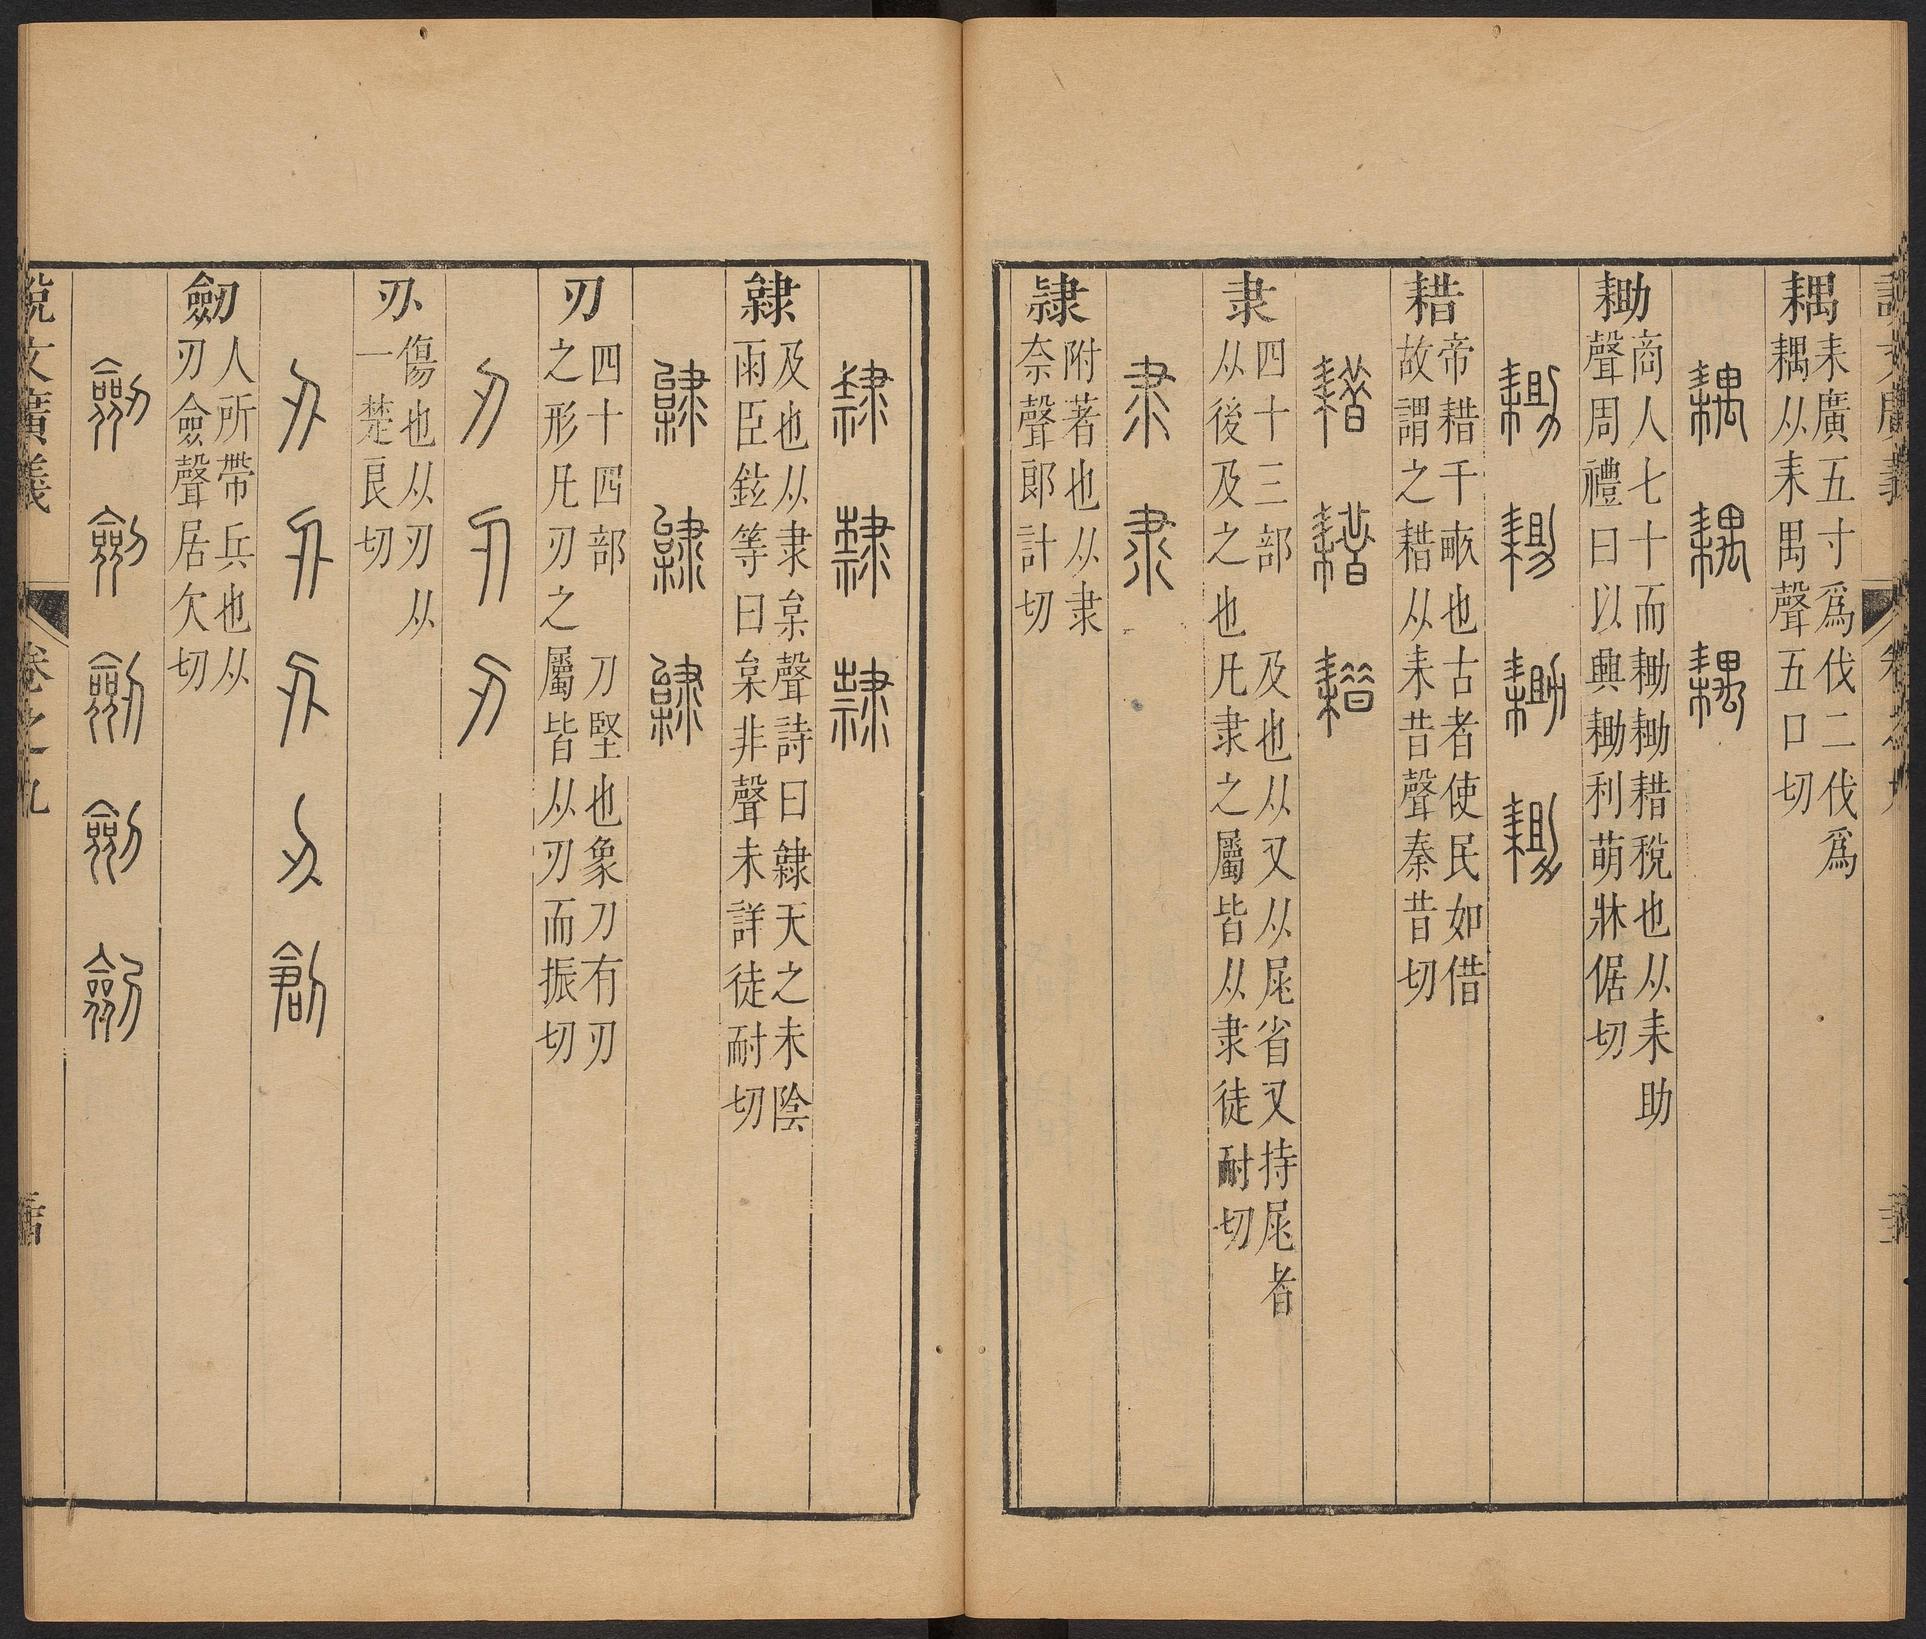 耦
耒廣五寸爲伐二伐爲
耦从耒禺聲五口切
耦耦耦
耡
商人七十而耡耡耤稅也从耒助
聲周禮曰以興耡耡利萌牀倨切
耡耡耡耡
耤
帝耤千畝也古者使民如借
故謂之耤从耒昔聲秦昔切
耤耤耤
隶
四十三部 及也从又从尾省又持尾者
从後及之也凡隶之屬皆从隶徒耐切
隶隶
隸
附著也从隶
奈聲郎計切
隸隸隸
隸
及也从隶枲聲詩曰隸天之未陰
雨臣鉉等曰枲非聲未詳徒耐切
刃
四十四部 刀堅也象刀有刃
之形凡刃之屬皆从刃而振切
刃刃刃
刅
傷也从刃从
一楚良切
刅刅刅刅
劒
人所帶兵也从
刃僉聲居欠切
劒劒劒劒劒
說文廣義
卷之九